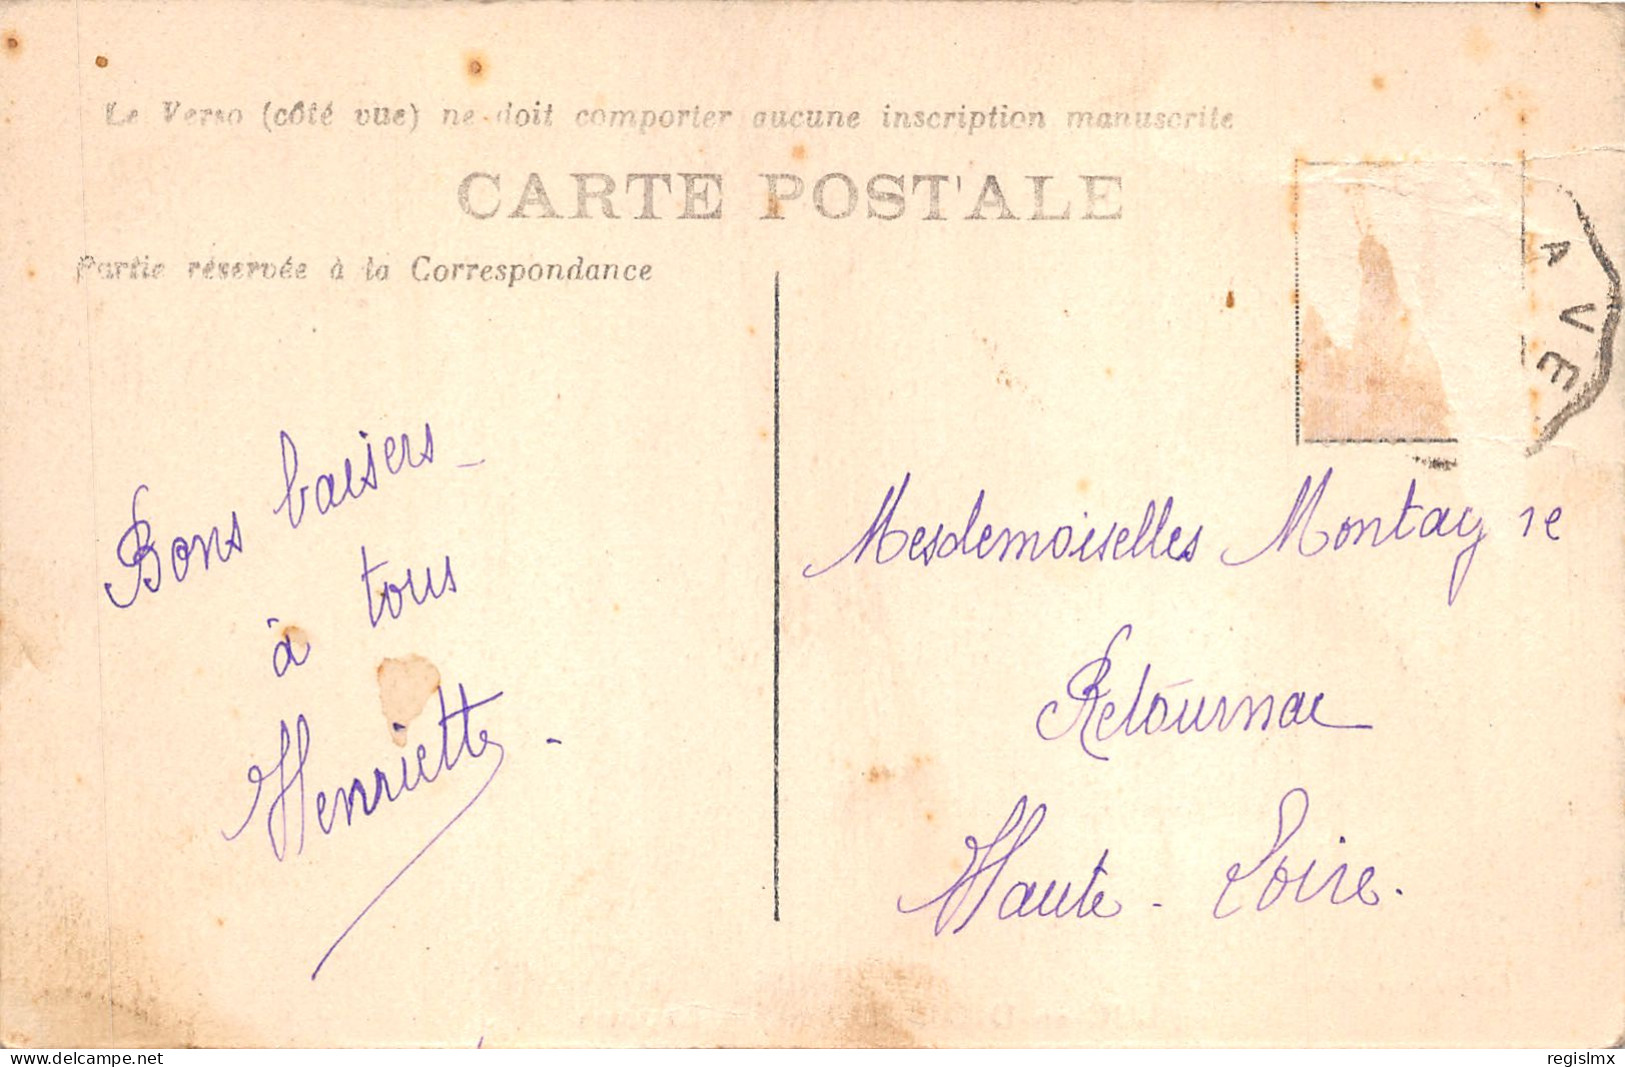 Le Verso (côté vue) ne doit comporter aucune inscription manuscrite
CARTE POSTALE
Partie réservée à la Correspondance
AVE
Bons baisers
à tous
Henriette.
Mesdemoiselles Montagne
Retournac
Haute-Loire.
www.delcampe.net
regislmx